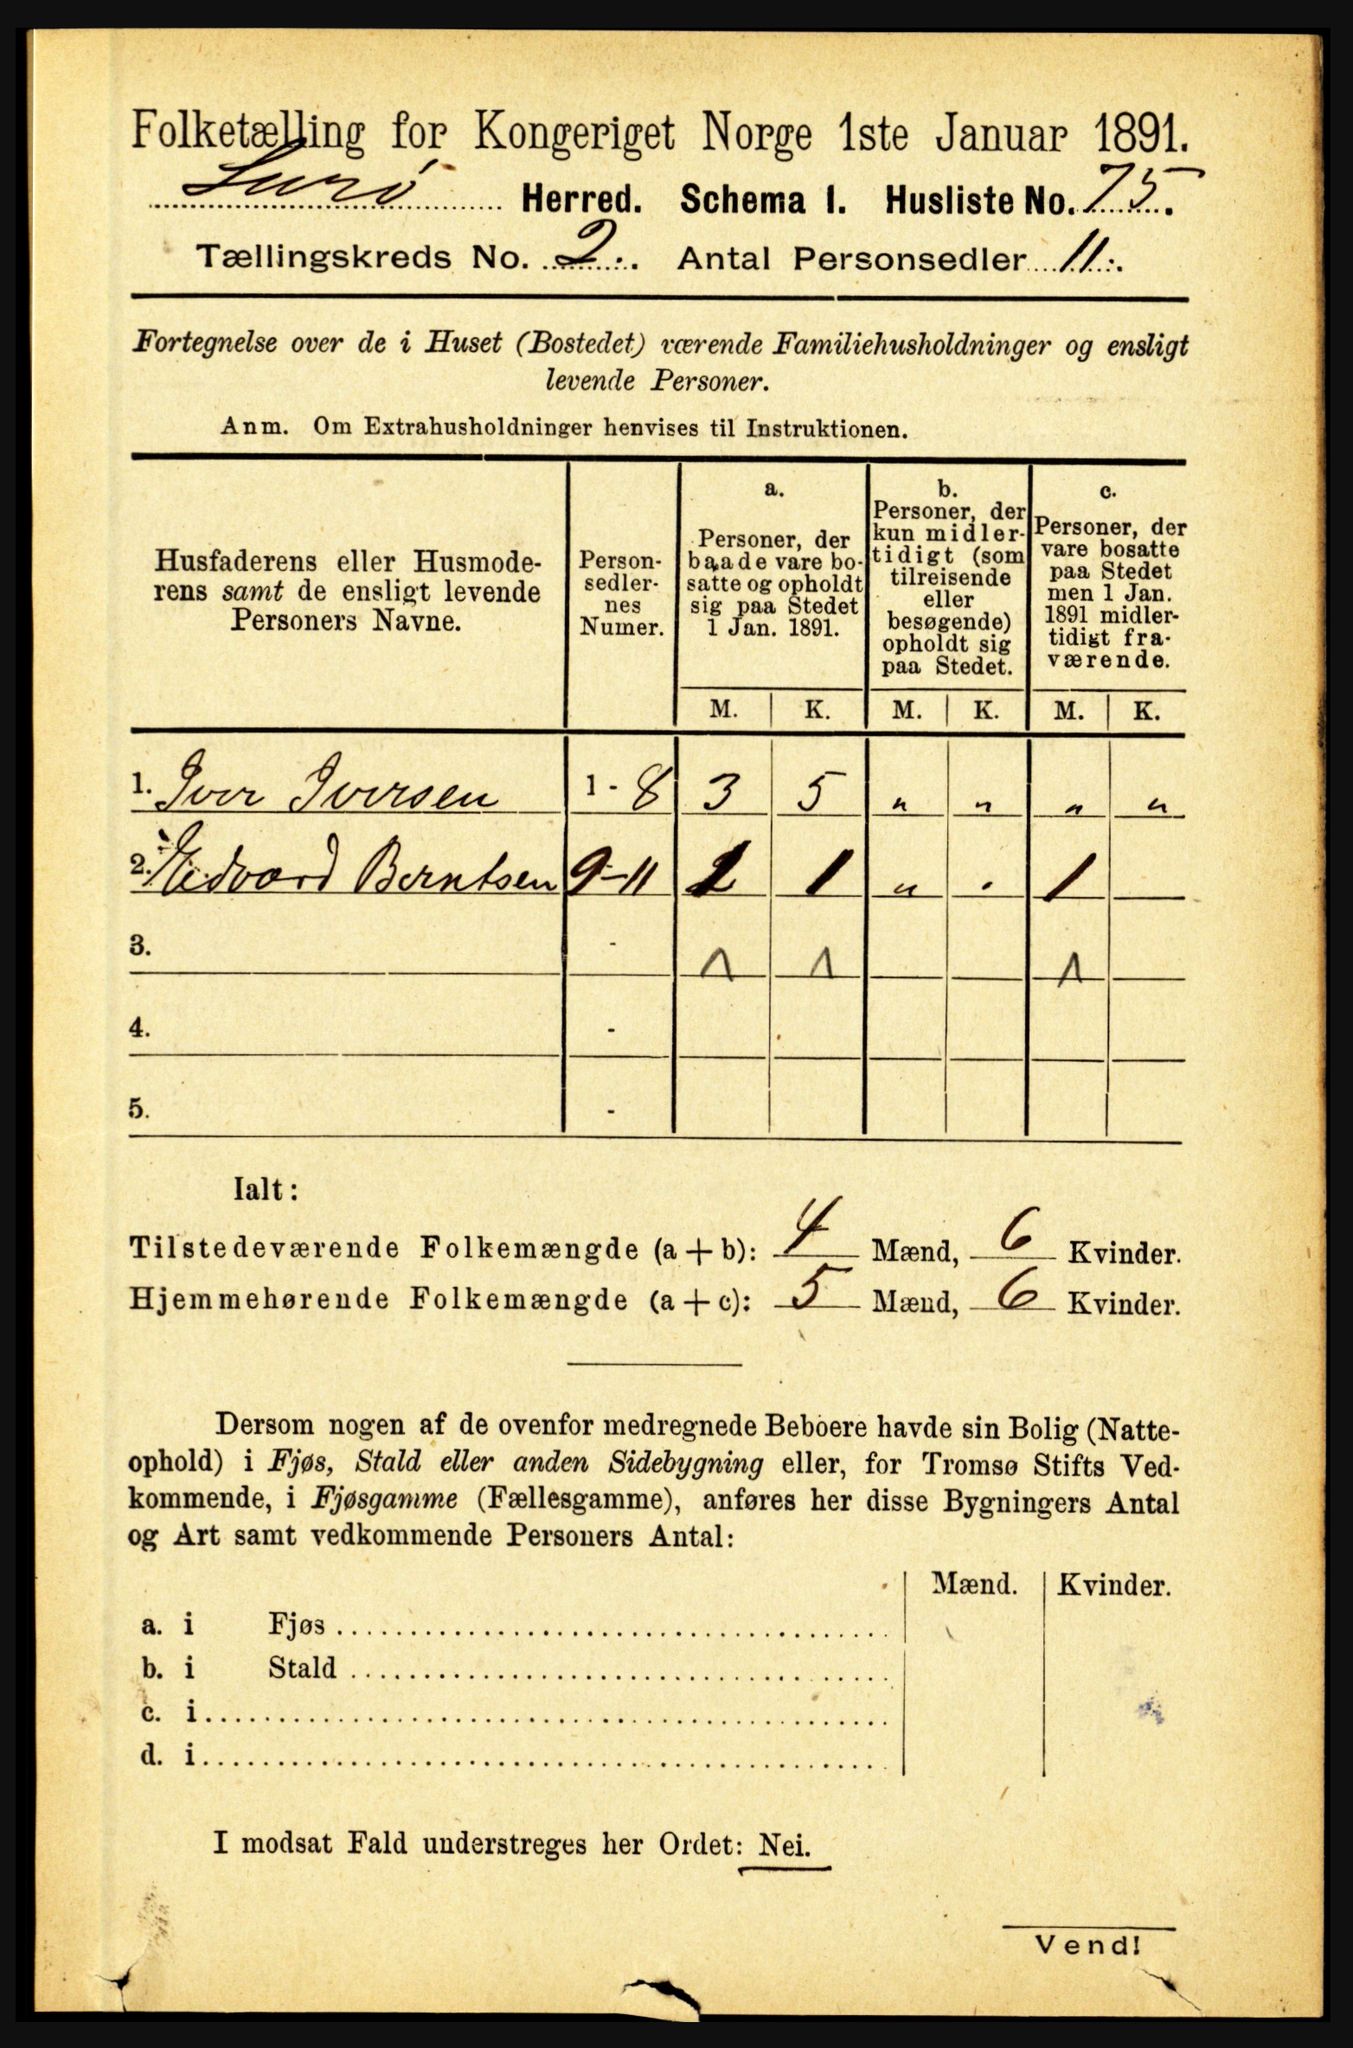 Folketælling for Kongeriget Norge 1ste Januar 1891.
Lurø Herred. Schema I. Husliste No. 75.
Tællingskreds No. 2. Antal Personsedler 11.
Fortegnelse over de i Huset (Bostedet) værende Familiehusholdninger og ensligt
levende Personer.
Anm. Om Extrahusholdninger henvises til Instruktionen.
Husfaderens eller Husmode-
rens samt de ensligt levende
Personers Navne.
Person-
sedler-
nes
Numer.
a.
Personer, der
baade vare bo-
satte og opholdt
sig paa Stedet
1 Jan. 1891.
b.
Personer, der
kun midler-
tidigt (som
tilreisende
eller
besøgende)
opholdt sig
paa Stedet.
c.
Personer, der
vare bosatte
paa Stedet
men 1 Jan.
1891 midler-
tidigt fra-
værende.
M. K. M. K. M. K.
1. Iver Iversen 1 - 8 3 5 " " " "
2. Edvard Berntsen 9-11 1 1 " . 1
3. - 1 1 1
4. -
5. -
Ialt:
Tilstedeværende Folkemængde (a + b): 4 Mænd, 6 Kvinder.
Hjemmehørende Folkemængde (a + c): 5 Mænd, 6 Kvinder.
Dersom nogen af de ovenfor medregnede Beboere havde sin Bolig (Natte-
ophold) i Fjøs, Stald eller anden Sidebygning eller, for Tromsø Stifts Ved-
kommende, i Fjøsgamme (Fællesgamme), anføres her disse Bygningers Antal
og Art samt vedkommende Personers Antal:
Mænd. Kvinder.
a. i Fjøs
b. i Stald
c. i
d. i
I modsat Fald understreges her Ordet: Nei.
Vend!